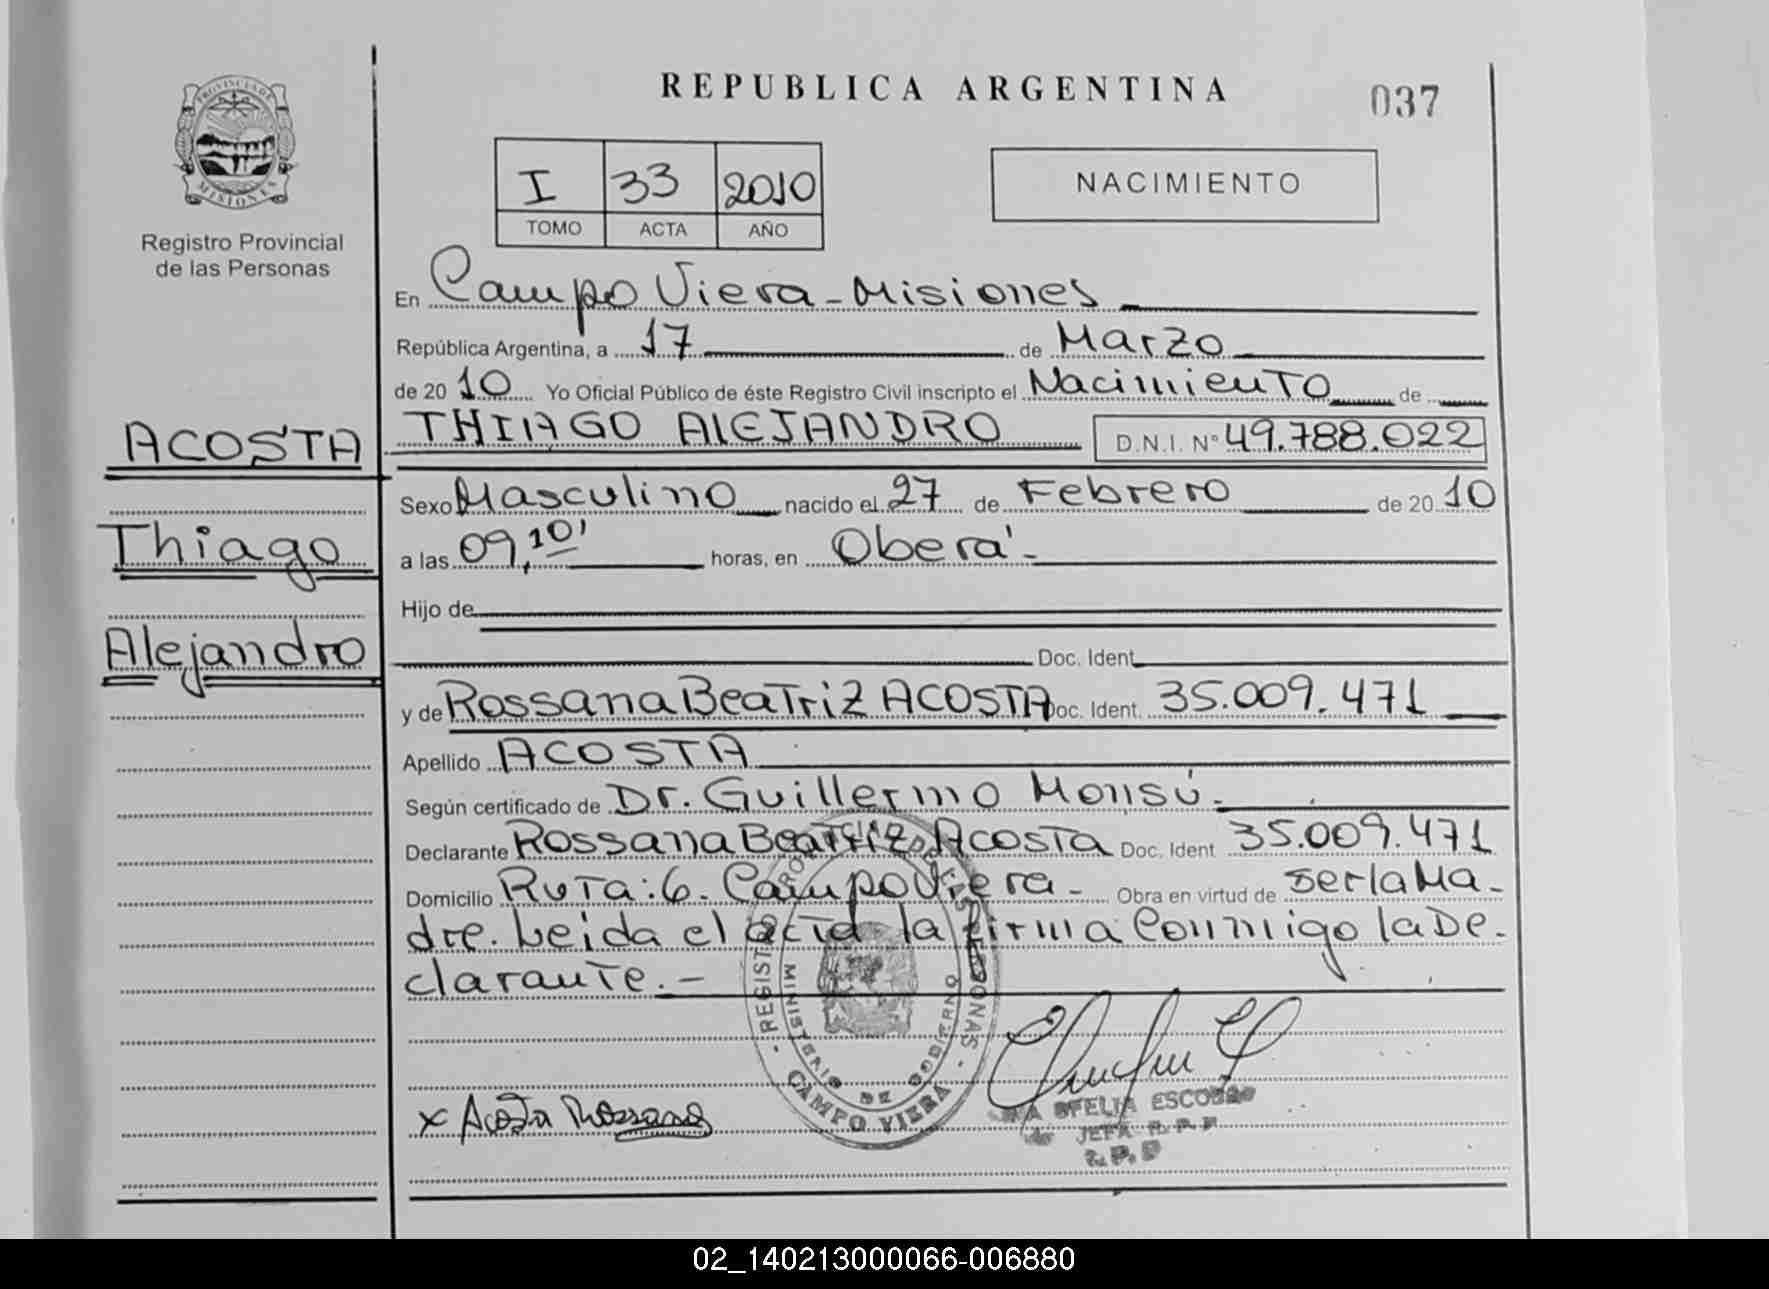 REPUBLICA ARGENTINA
037
PROVINCIA DE
MISIONES
Registro Provincial
de las Personas
I 33 2010
TOMO ACTA AÑO
NACIMIENTO
En Campo Viera - Misiones
República Argentina, a 17 de Marzo
de 20 10 Yo Oficial Público de éste Registro Civil inscripto el Nacimiento de
THIAGO ALEJANDRO D.N.I. Nº 49.788.022
ACOSTA
Thiago
Alejandro
Sexo Masculino nacido el 27 de Febrero de 20 10
a las 09,10' horas, en Obera'-
Hijo de
Doc. Ident.
y de Rossana Beatriz ACOSTA Doc. Ident. 35.009.471
Apellido ACOSTA
Según certificado de Dr. Guillermo Monsú.
Declarante Rossana Beatriz Acosta Doc. Ident 35.009.471
Domicilio Ruta: 6. Campo Viera - Obra en virtud de ser la Ma-
dre. Leida el acta la firma conmigo la De-
clarante.-
REGISTRO PROVINCIAL DE LAS PERSONAS
MINISTERIO DE GOBIERNO
CAMPO VIERA
x Acosta Rossana
OFELIA ESCOBAR
JEFA R.P.P
02_140213000066-006880